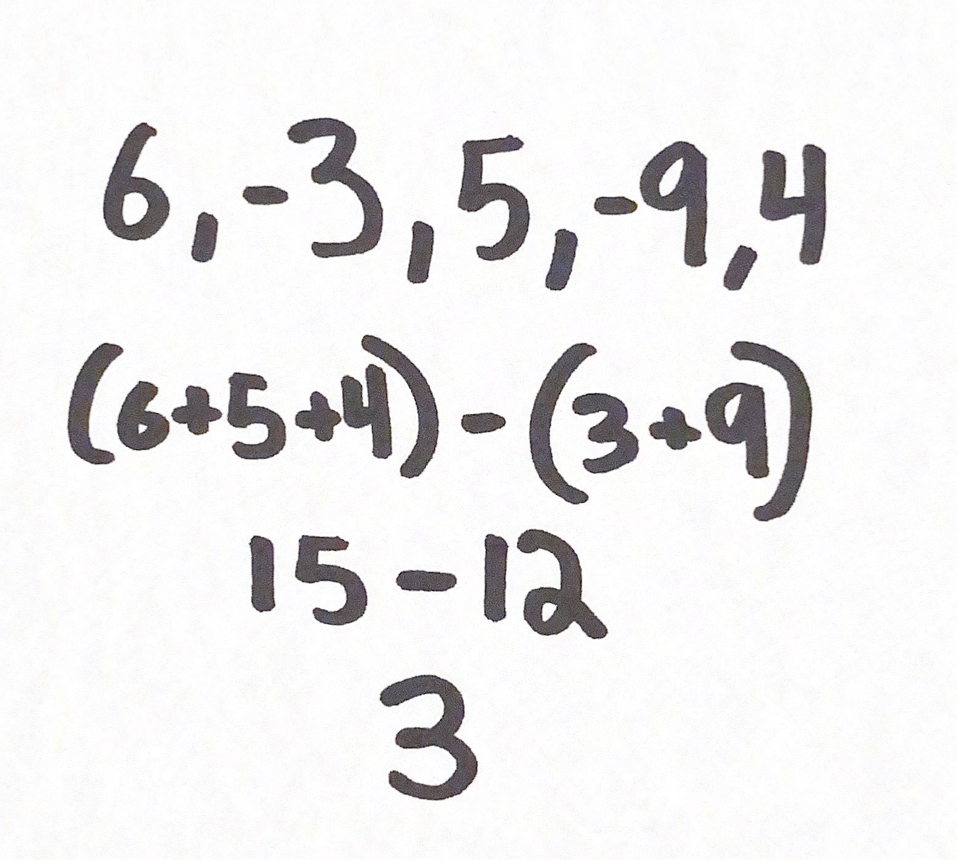 6, -3, 5, -9, 4
(6+5+4) - (3+9)
15 - 12
3